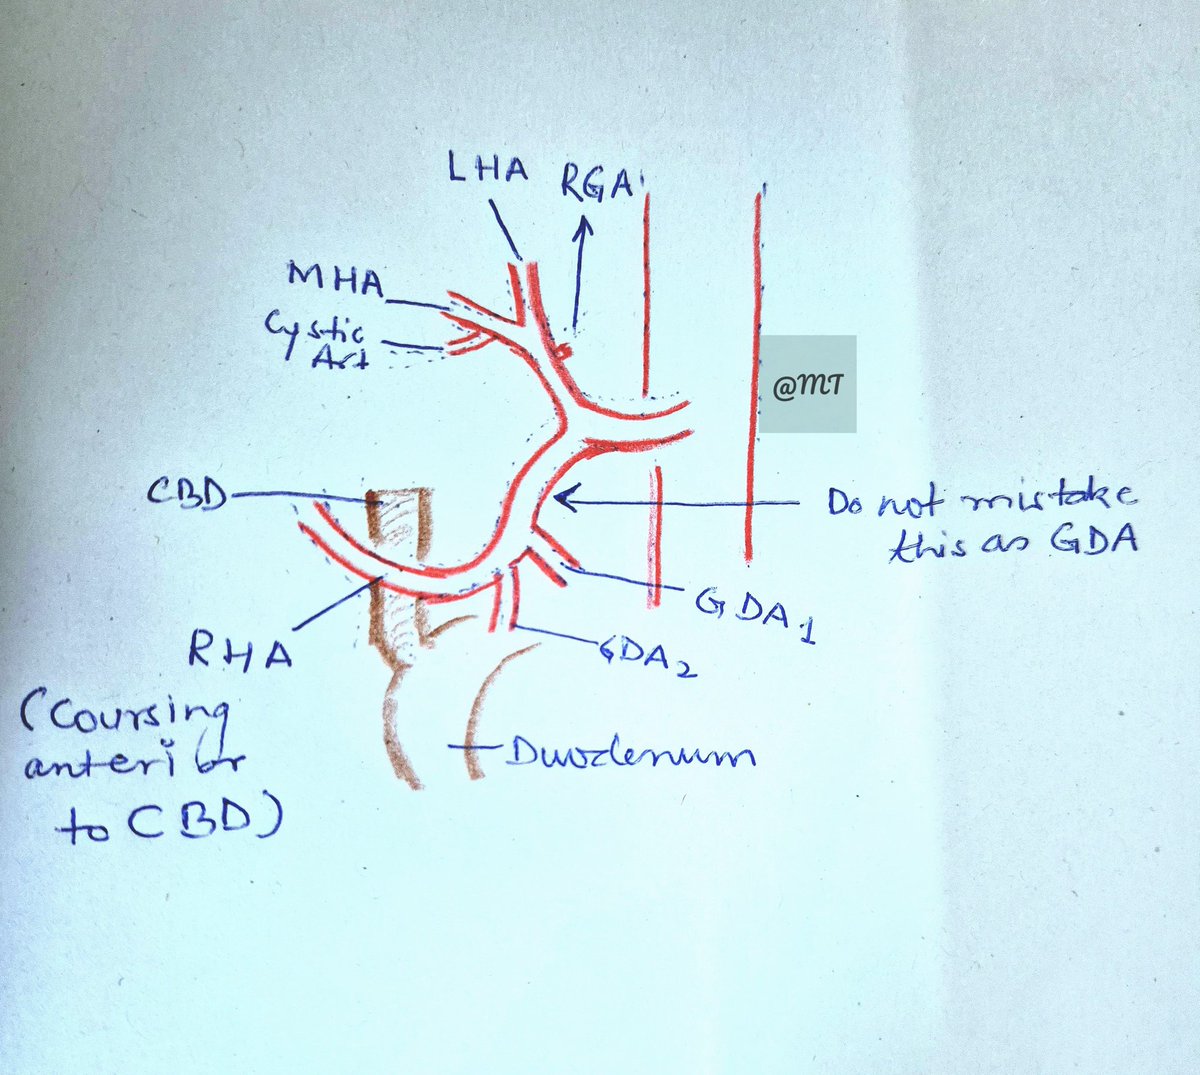 LHA
RGA
MHA
Cystic
Art
@MT
CBD
Do not mistake
this as GDA
GDA1
GDA2
RHA
(Coursing
anterior
to CBD)
Duodenum